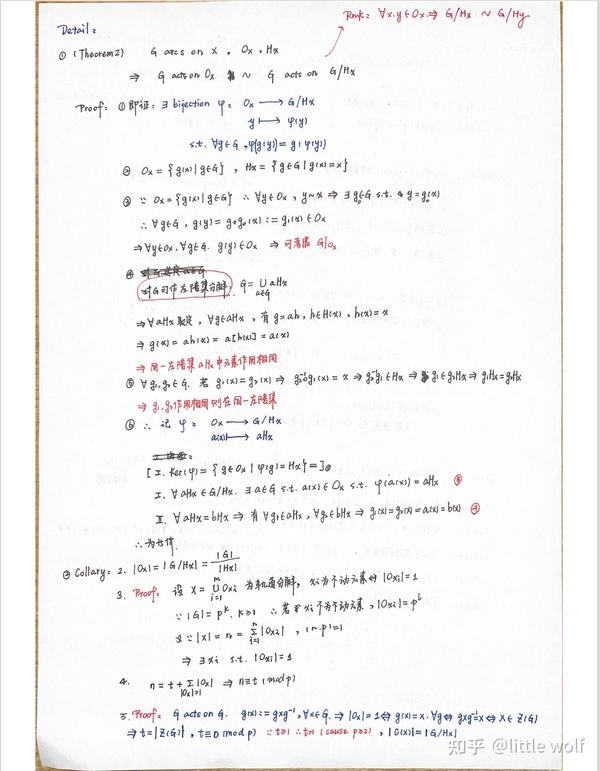 Rmk: ∀x.y∈Ox ⇒ G/Hx ~ G/Hy
Detail:
① (Theorem2) G acts on X, Ox, Hx
⇒ G acts on Ox ~ G acts on G/Hx
Proof: ① 即证: ∃ bijection φ: Ox → G/Hx
y ↦ φ(y)
s.t. ∀g∈G, φ(g(y)) = g(φ(y))
② Ox = {g(x)|g∈G}, Hx = {g∈G|g(x)=x}
③ ∵ Ox = {g(x)|g∈G} ∴ ∀y∈Ox, y~x ⇒ ∃g₀∈G s.t. y=g₀(x)
∴ ∀g∈G, g(y) = g∘g₀(x) := g₁(x) ∈ Ox
⇒ ∀y∈Ox. ∀g∈G. g(y)∈Ox ⇒ 可考虑 G|Ox
④
对G可作左陪集分解 G = ∪ aHx
a∈G
⇒ ∀aHx 取定, ∀g∈aHx, 有 g=ah, h∈H(x), h(x)=x
⇒ g(x) = ah(x) = a[h(x)] = a(x)
⇒ 同一左陪集 aHx 中元素作用相同
⑤ ∀g₁,g₂∈G. 若 g₁(x)=g₂(x) ⇒ g₂⁻¹g₁(x) = x ⇒ g₂⁻¹g₁∈Hx ⇒ g₁∈g₂Hx ⇒ g₁Hx=g₂Hx
⇒ g₁,g₂作用相同则在同一左陪集
⑥ ∴ 记 φ: Ox → G/Hx
a(x) ↦ aHx
[I. Ker(φ) = {g∈Ox | φ(g)=Hx} = ]
I. ∀aHx∈G/Hx. ∃a∈G s.t. a(x)∈Ox s.t. φ(a(x)) = aHx ⑤
II. ∀aHx=bHx ⇒ 有 ∀g₁∈aHx, ∀g₂∈bHx ⇒ g₁(x)=g₂(x)=a(x)=b(x) ④
∴ 为等价.
② Collary: 2. |Ox| = |G/Hx| = |G|/|Hx|
3. Proof: 设 X = ∪ᵢ₌₁ᵐ Oxi 为轨道分解, xi为不动元素⇔|Oxi|=1
∵ |G| = pᵏ. k≥1 ∴ 若 xi 不为不动元素, |Oxi| = pᵗ
又∵ |X| = n = Σᵢ₌₁ⁿ |Oxi|, (n.p)=1
⇒ ∃xi s.t. |Oxi|=1
4. n = t + Σ|Ox| ⇒ n≡t (mod p)
|Ox|>1
5. Proof: G acts on G. g(x) := gxg⁻¹, ∀x∈G. ⇒ |Ox|=1 ⇔ g(x)=x. ∀g ⇔ gxg⁻¹=x ⇔ x∈Z(G)
⇒ t=|Z(G)|, t≡0 (mod p) ∵ t≥1 ∴ t>1 (cause p≥2), |O(x)| = |G/Hx|
知乎 @little wolf